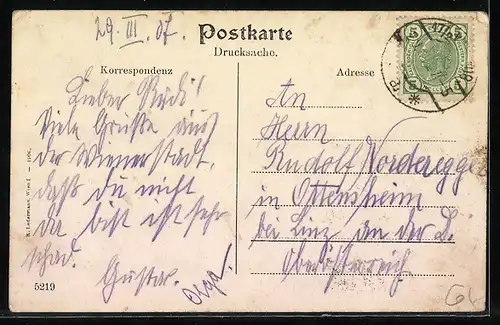 29. III. 07.
Postkarte
Drucksache.
Korrespondenz
Adresse
Lieber Rudi!
Viele Grüße aus
der Wienerstadt,
daß du nicht
da bist ist sehr
schad.
Gustav.
Olga.
An
Herrn
Rudolf Nordegge
in Ottensheim
bei Linz an der D.
Oberösterreich
5
5
5219